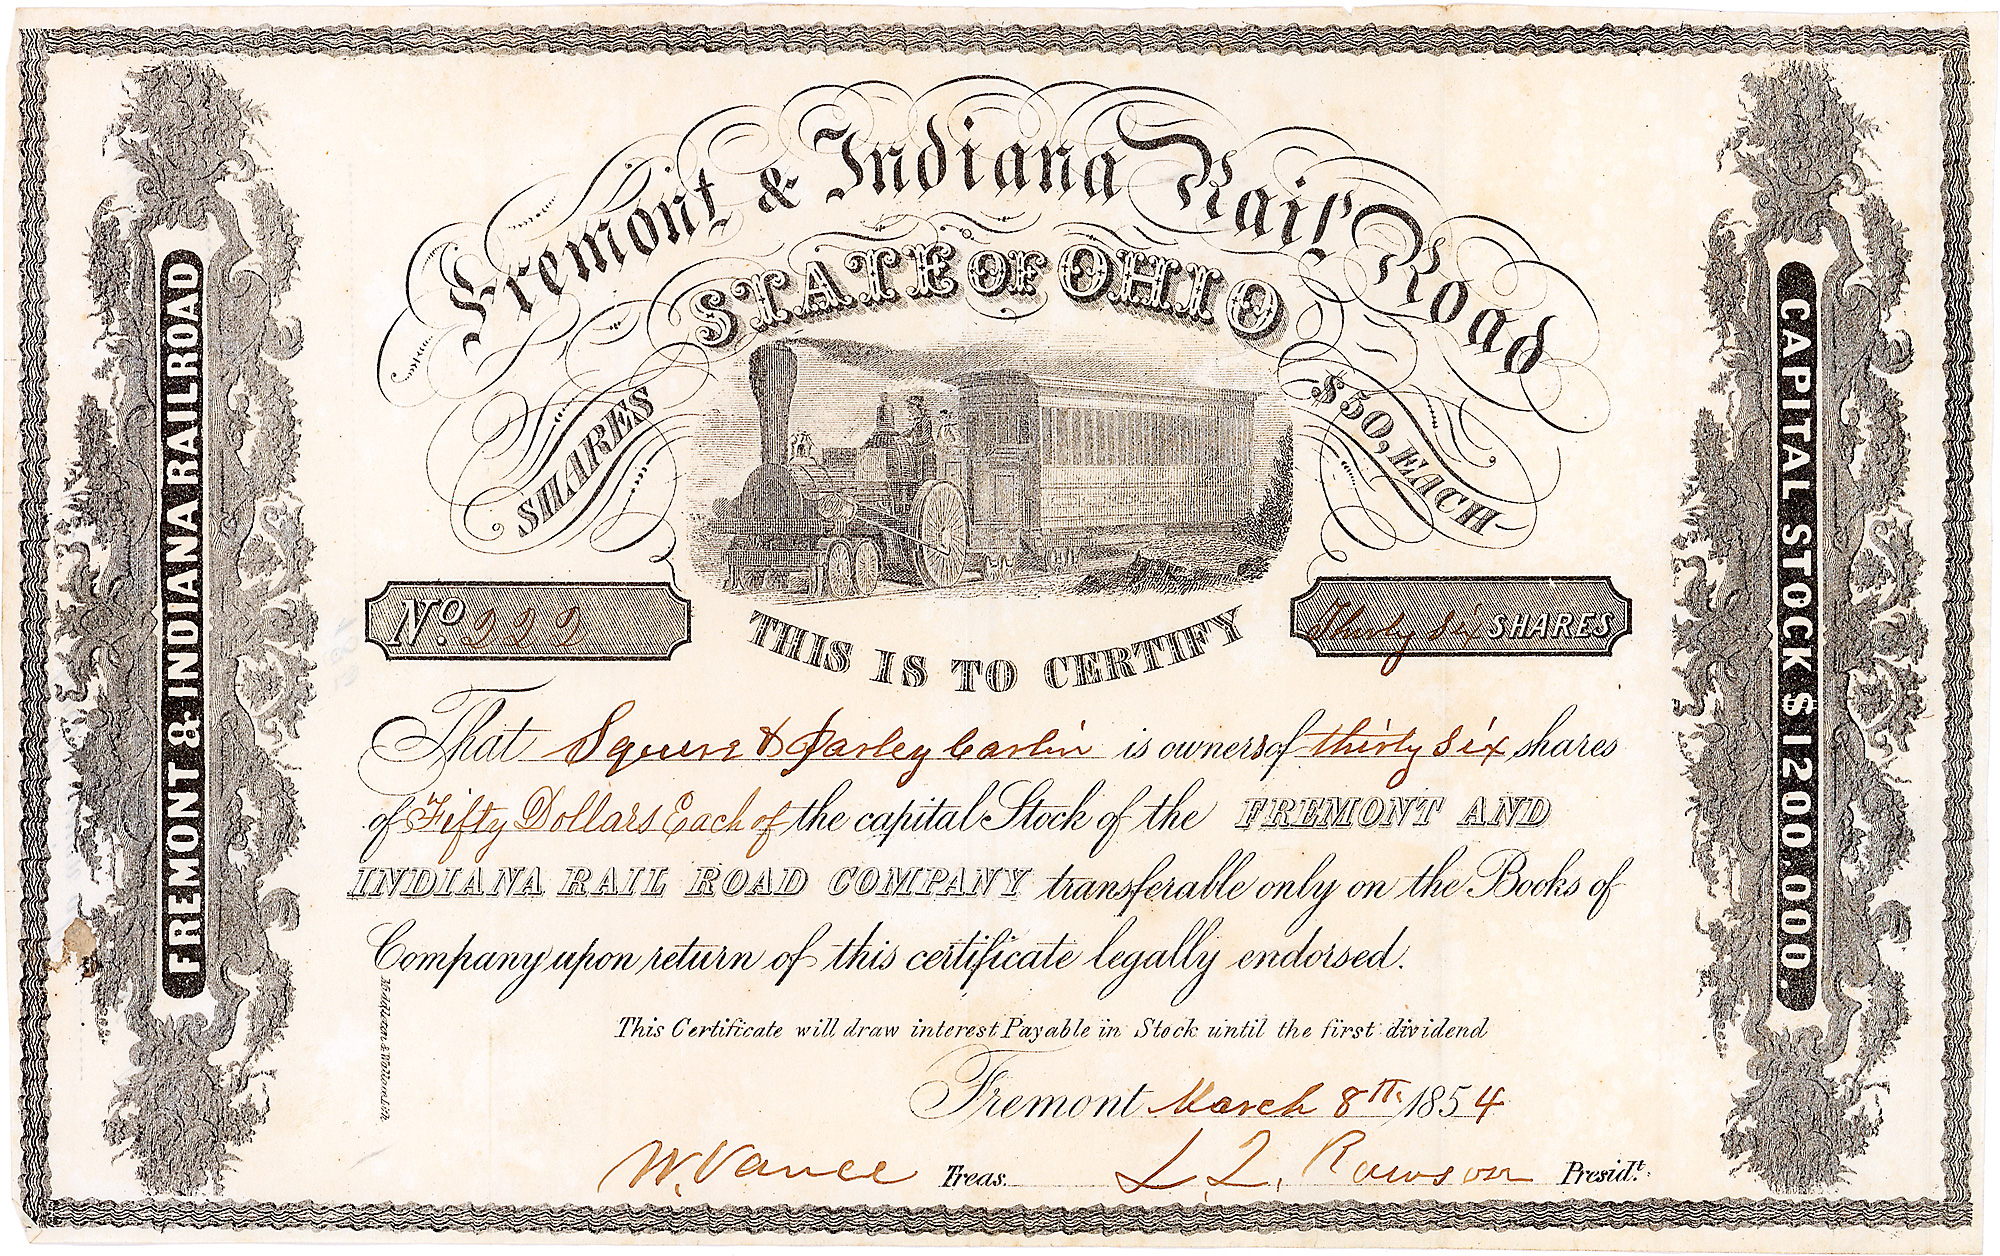 Fremont & Indiana Rail Road
STATE OF OHIO
SHARES
$50, EACH
No. 222
Thirty Six SHARES
THIS IS TO CERTIFY
That Squire & Parley Carlin is owners of thirty six shares
of Fifty Dollars Each of the capital Stock of the FREMONT AND
INDIANA RAIL ROAD COMPANY transferable only on the Books of
Company upon return of this certificate legally endorsed.
This Certificate will draw interest Payable in Stock until the first dividend
Fremont March 8th. 1854
W. Vance Treas. L. Q. Rawson Presidt.
FREMONT & INDIANA RAILROAD
CAPITAL STOCK $1200,000.